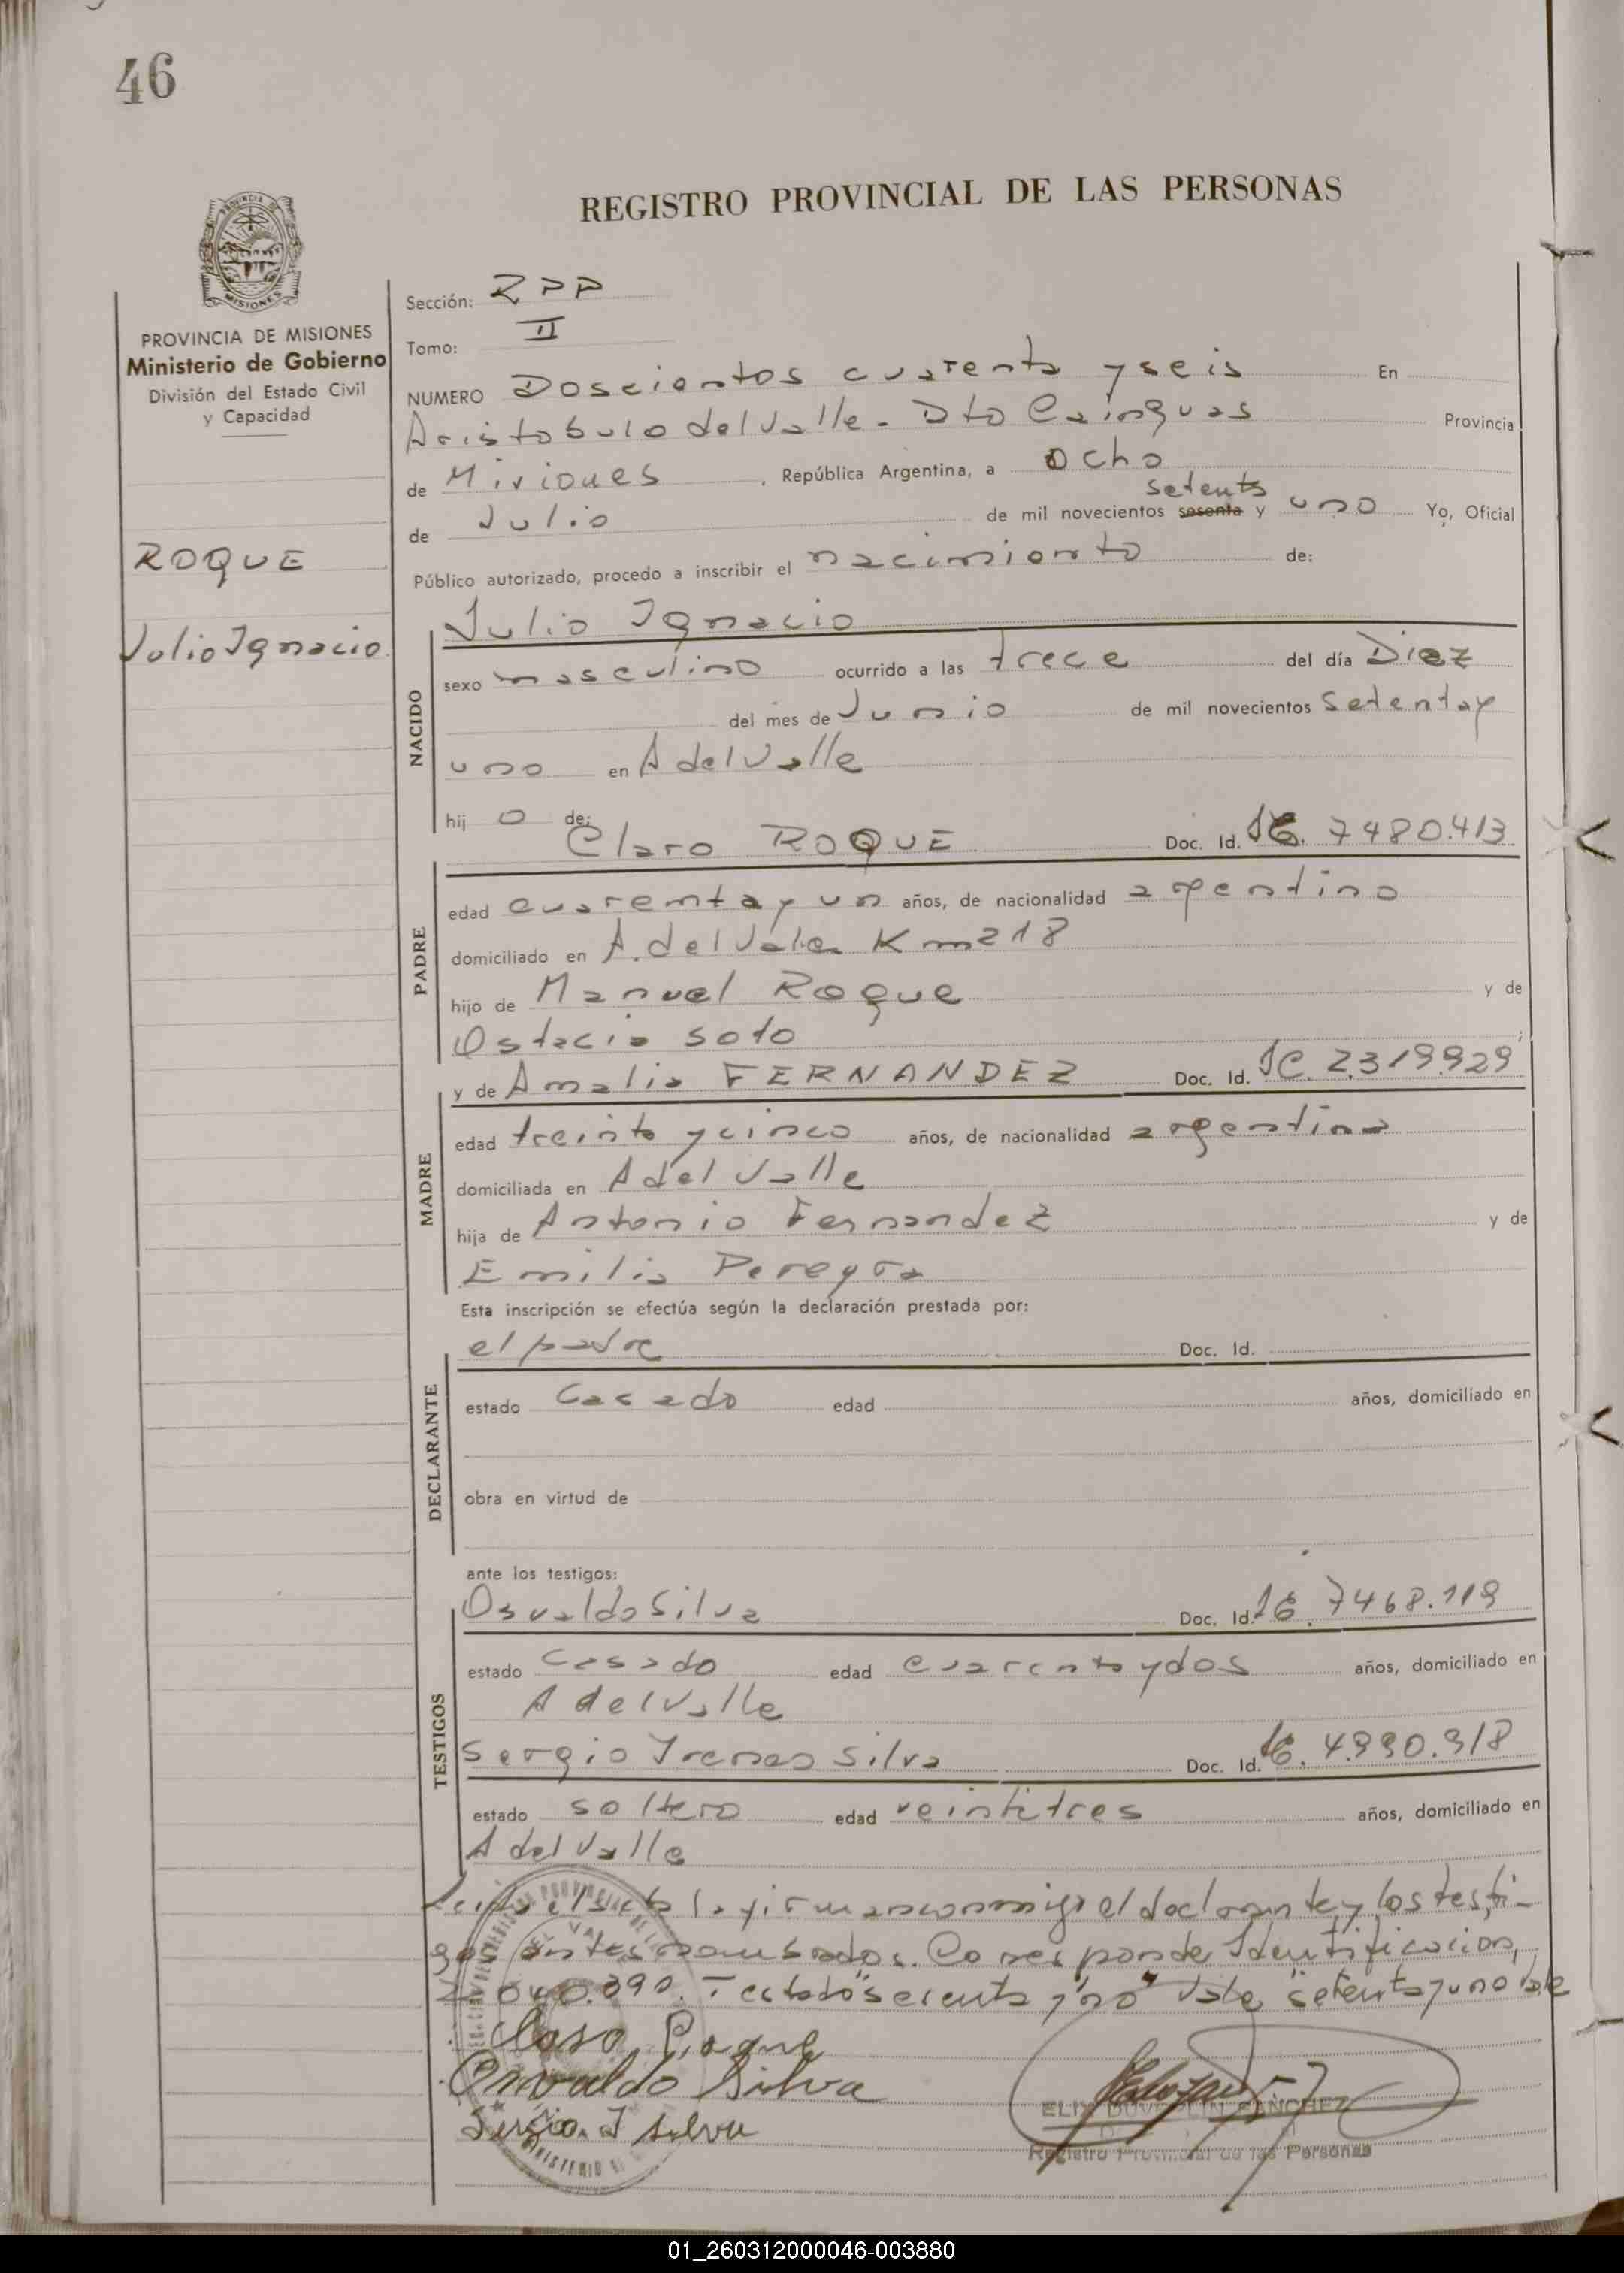 46
REGISTRO PROVINCIAL DE LAS PERSONAS
PROVINCIA DE
MISIONES
PROVINCIA DE MISIONES
Ministerio de Gobierno
División del Estado Civil
y Capacidad
ROQUE
Julio Ignacio
Sección: RPP
Tomo: II
NUMERO Doscientos cuarenta y seis En
Aristobulo del Valle - Dto Cainguas Provincia
de Misiones, República Argentina, a Ocho
setenta
de Julio de mil novecientos sesenta y uno Yo, Oficial
Público autorizado, procedo a inscribir el nacimiento de:
Julio Ignacio
NACIDO
sexo masculino ocurrido a las trece del día Diez
del mes de Junio de mil novecientos setenta y
uno en A del Valle
hij o de:
Claro ROQUE Doc. Id. 7480.413
PADRE
edad cuarenta y un años, de nacionalidad argentino
domiciliado en A. del Valle Km 218
hijo de Manuel Roque y de
Ostacia Soto
y de Amalia FERNANDEZ Doc. Id. 2.319.929
MADRE
edad treinta y cinco años, de nacionalidad argentina
domiciliada en A del Valle
hija de Antonio Fernandez y de
Emilia Pereyra
Esta inscripción se efectúa según la declaración prestada por:
el padre Doc. Id.
DECLARANTE
estado Casado edad años, domiciliado en
obra en virtud de
ante los testigos:
Osvaldo Silva Doc. Id. 7468.119
TESTIGOS
estado Casado edad cuarenta y dos años, domiciliado en
A del Valle
Sergio Ireneo Silva Doc. Id. 4.990.918
estado soltero edad veintitres años, domiciliado en
A del Valle
Leida el acta la firman conmigo el declarante y los testi-
gos antes nombrados. Corresponde Identificacion
Testado "sesenta y no" Vale "setenta y uno" Vale
Claro Roque
Osvaldo Silva
Sergio I Silva
SANCHEZ
Registro Provincial de las Personas
01_260312000046-003880